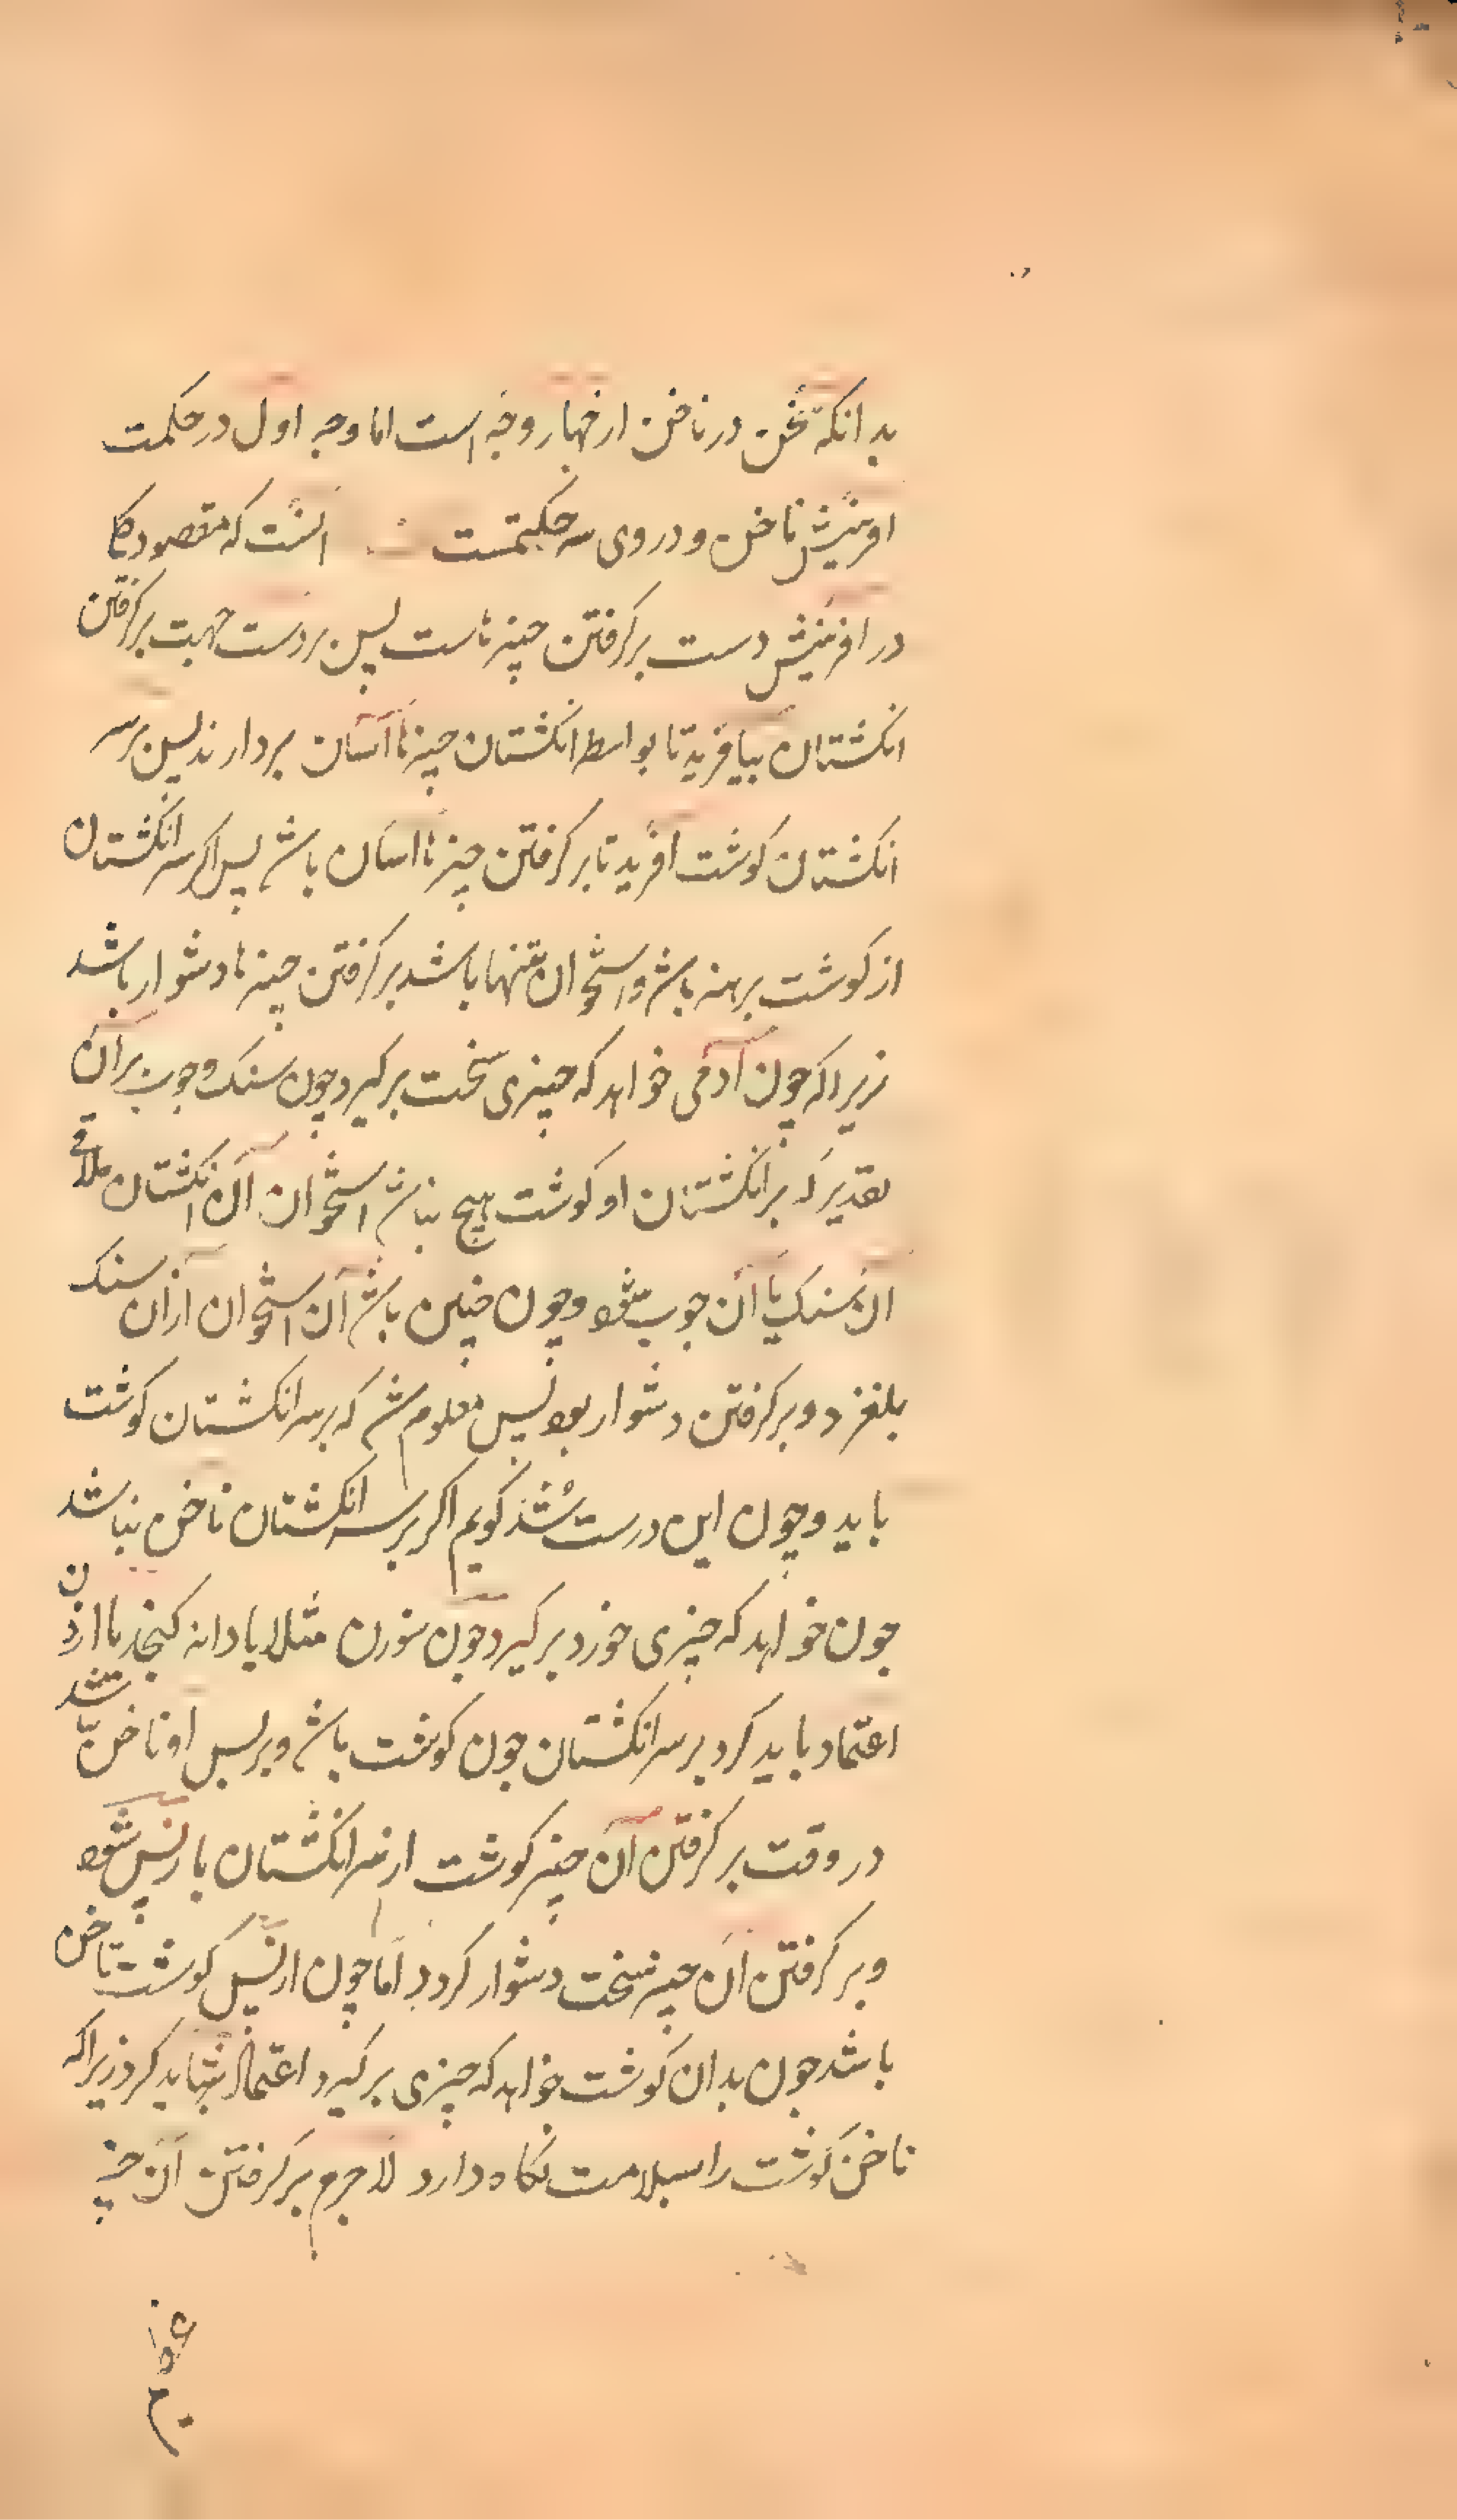 بدانکه سخن در ناخن از چهار وجه است اما وجه اول در حکمت
افرینش ناخن و در وی سه حکمتست انست که مقصود کلی
در افرینش دست برکرفتن چیزهاست پس بر دست جهت برکرفتن
انکشتان بیافرید تا بواسطه انکشتان چیزها آسان بردارند پس بر سر
انکشتان کوشت افرید تا برکرفتن چیزها اسان باشد پس اکر سر انکشتان
از کوشت برهنه باشد و استخوان تنها باشد برکرفتن چیزها دشوار باشد
زیرا که چون آدمی خواهد که چیزی سخت برکیرد چون سنک و چوب بر آن
تقدیر که بر انکشتان او کوشت هیچ نباشد استخوان آن انکشتان ملاقی
ان سنک یا آن چوب شود و چون چنین باشد آن استخوان از آن سنک
بلغزد و برکرفتن دشوار بود پس معلوم شد که بر سر انکشتان کوشت
باید و چون این درست شد کویم اکر بر سر انکشتان ناخن نباشد
چون خواهد که چیزی خورد برکیرد چون سوزن مثلا یا دانه کنجد یا ارزن
اعتماد باید کرد بر سر انکشتان چون کوشت باشد و بر پس او ناخن نباشد
در وقت برکرفتن آن چیز کوشت از سر انکشتان باز پس شود
و برکرفتن آن چیز سخت دشوار کردد اما چون از پس کوشت ناخن
باشد چون بدان کوشت خواهد که چیزی برکیرد اعتماد بشاید کرد زیرا که
ناخن کوشت را سلامت نکاه دارد لا جرم برکرفتن آن چیز